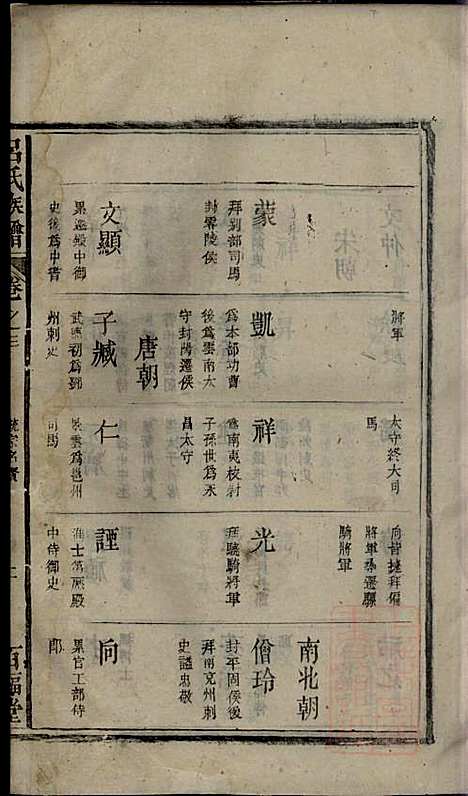 將軍
太守終大司
馬
將軍牽遷驃
騎將軍
南北朝
蒙
拜別部司馬
封零陵侯
凱
為本部功曹
後為雲南太
守封陽遷侯
祥
為南夷校尉
子孫世為永
昌太守
光
拜驍騎將軍
僧玲
封平固侯後
拜南兗州刺
史謚忠敬
唐朝
文顯
累遷殿中御
史後為中書
子臧
武德初為鄧
州刺史
仁
景雲為邕州
司馬
諲
進士第歷殿
中侍御史
向
累官工部侍
郎
呂氏族譜
卷之三
百福堂